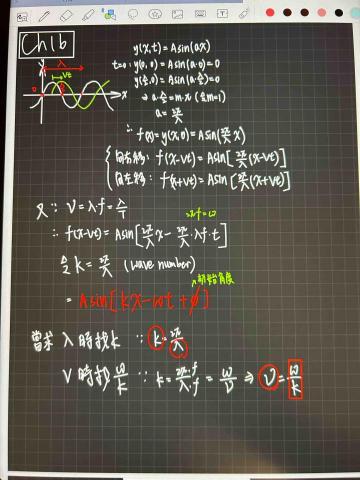 Ch16
y(x,t) = A sin(ax)
t=0: y(0,0) = A sin(a·0) = 0
y(λ/2,0) = A sin(a·λ/2) = 0
⇒ a·λ/2 = m·π (令m=1)
a = 2π/λ
∴ f(x) = y(x,0) = A sin(2π/λ x)
向右移: f(x-vt) = A sin[2π/λ(x-vt)]
向左移: f(x+vt) = A sin[2π/λ(x+vt)]
y
λ
vt
x
又∵ v = λ·f = λ/T
2πf = ω
∴ f(x-vt) = A sin[2π/λ x - 2π/λ·λf·t]
令 k = 2π/λ (wave number)
初始角度
= A sin[kx - ωt + ϕ]
當求 λ 時找 k ∵ k = 2π/λ
v 時找 ω/k ∵ k = 2π/λ · f/f = ω/v ⇒ v = ω/k